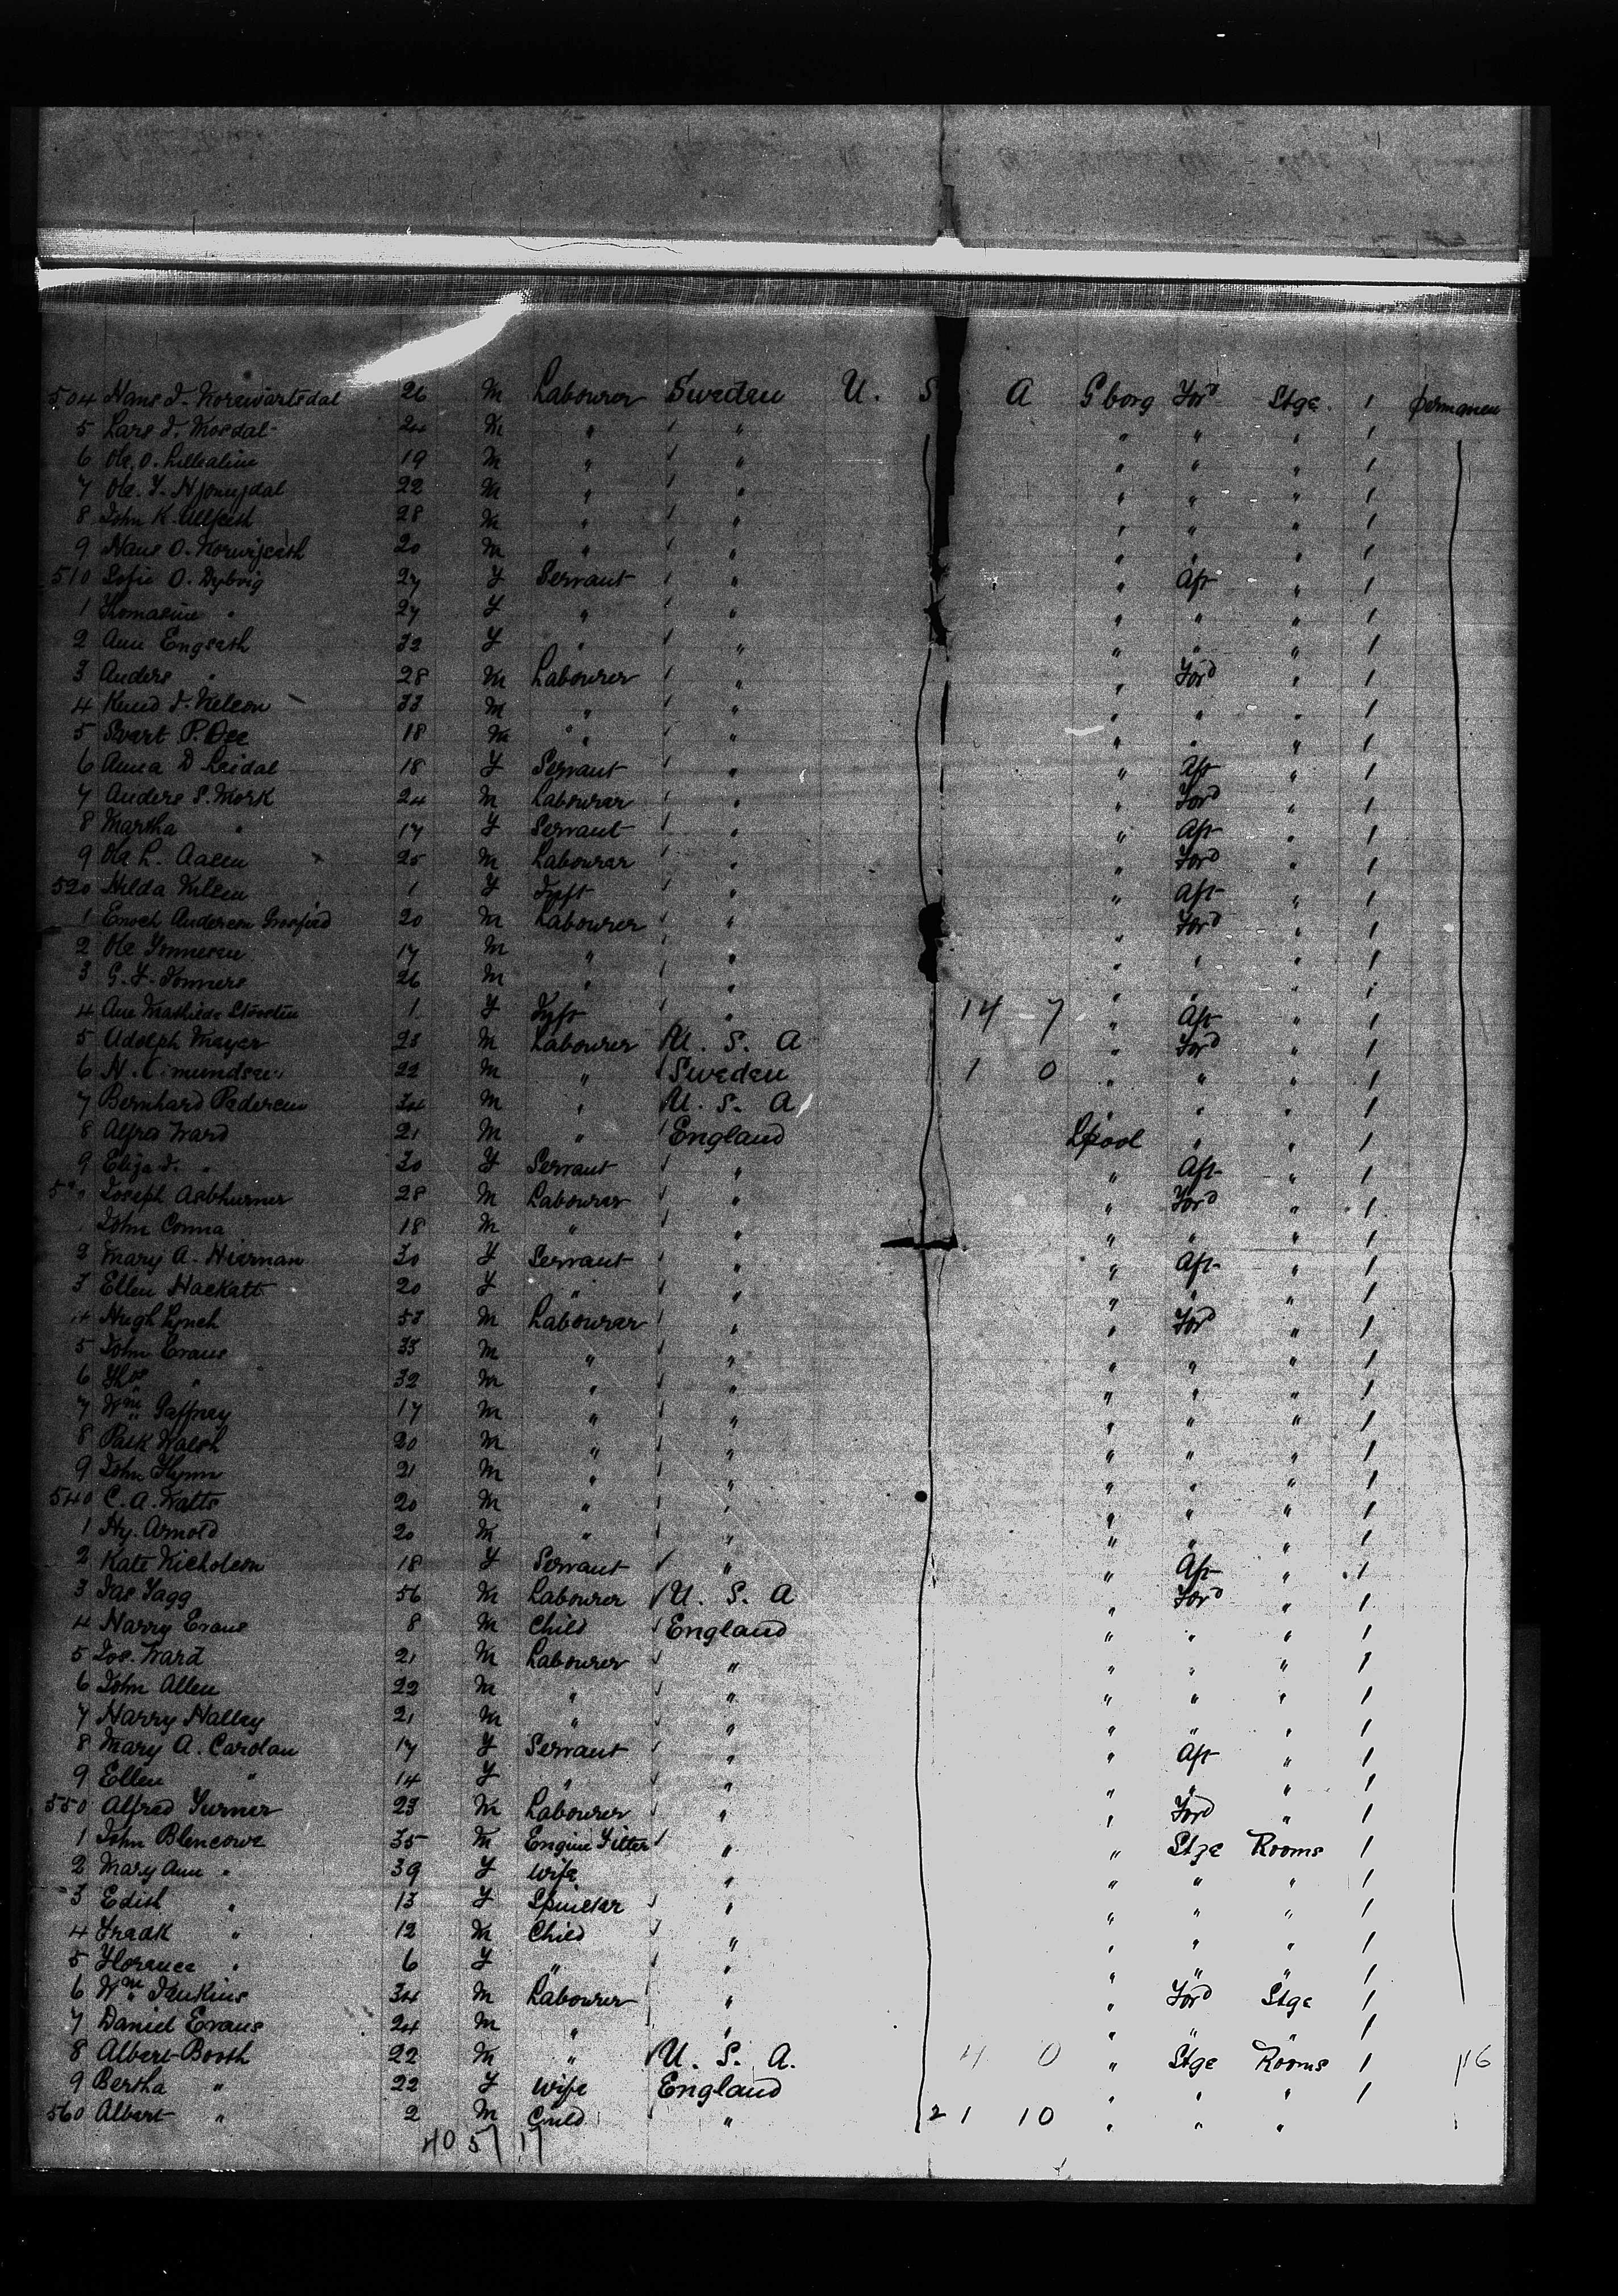 504 Hans J. Korswartsdal 26 M Labourer Sweden U. S A Gborg Ford Stge. 1 permanen
5 Lars J. Mosdal 24 M " " " " " 1
6 Ole. O. 19 M " " " " " 1
7 Ole. 22 M " " " " " 1
8 John K. 28 M " " " " " 1
9 Hans O. 20 M " " " " " 1
510 Sofie O. Dybvig 27 F Servant " " Aft " 1
1 Thomasine " 27 F " " " " " 1
2 Ann Engseth 32 F " " " " " 1
3 Anders " 28 M Labourer " " Ford " 1
4 Knud J. Nelson 33 M " " " " " 1
5 Svart P. 18 M " " " " " 1
6 Anna D Leidal 18 F Servant " " Aft " 1
7 Anders S. Mork 24 M Labourer " " Ford " 1
8 Martha " 17 F Servant " " Aft " 1
9 Ole L. Aasen 25 M Labourer " " Ford " 1
520 Hilda Nilsen 1 F Inft " " Aft " 1
1 Enoch Andersen 20 M Labourer " " Ford " 1
2 Ole Tonnesen 17 M " " " " " 1
3 G. F. Tonners 26 M " " " " " 1
4 Ane Mathilde 1 F Inft " 14 7 " Aft " 1
5 Adolph Mayer 23 M Labourer U. S. A " Ford " 1
6 N. 22 M " Sweden 1 0 " " " 1
7 Bernhard Pedersen 34 M " U. S. A " " " 1
8 Alfred Ward 21 M " England Lpool " " 1
9 Eliza J. " 30 F Servant " " Aft " 1
Joseph Ashburner 28 M Labourer " " Ford " 1
John Conna 18 M " " " " " 1
2 Mary A. Hiernan 30 F Servant " " Aft " 1
3 Ellen Hackett 20 F " " " " " 1
4 Hugh Lynch 53 M Labourer " " Ford " 1
5 John Evans 33 M " " " " " 1
6 Thos " 32 M " " " " " 1
7 Wm Gaffney 17 M " " " " " 1
8 Patk Walsh 20 M " " " " " 1
9 John Flynn 21 M " " " " " 1
540 C. A. Watts 20 M " " " " " 1
1 Hy. Arnold 20 M " " " " " 1
2 Kate Nicholson 18 F Servant " " Aft " 1
3 Jas Tagg 56 M Labourer U. S. A " Ford " 1
4 Harry Evans 8 M Child England " " " 1
5 Jos. Ward 21 M Labourer " " " " 1
6 John Allen 22 M " " " " " 1
7 Harry Halley 21 M " " " " " 1
8 Mary A. Carolan 17 F Servant " " Aft " 1
9 Ellen " 14 F " " " " " 1
550 Alfred Turner 23 M Labourer " " Ford " 1
1 John Blencowe 35 M Engine Fitter " " Stge Rooms 1
2 Mary Ann " 39 F Wife " " " " 1
3 Edith " 13 F Spinster " " " " 1
4 Fredk " 12 M Child " " " " 1
5 Florence " 6 F " " " " " 1
6 Wm Jenkins 34 M Labourer " " Ford Stge 1
7 Daniel Evans 24 M " " " " " 1
8 Albert Booth 22 M " U. S. A. 4 0 " Stge Rooms 1 116
9 Bertha " 22 F Wife England " " " 1
560 Albert " 2 M Child " 21 10 " " "
40 57 17